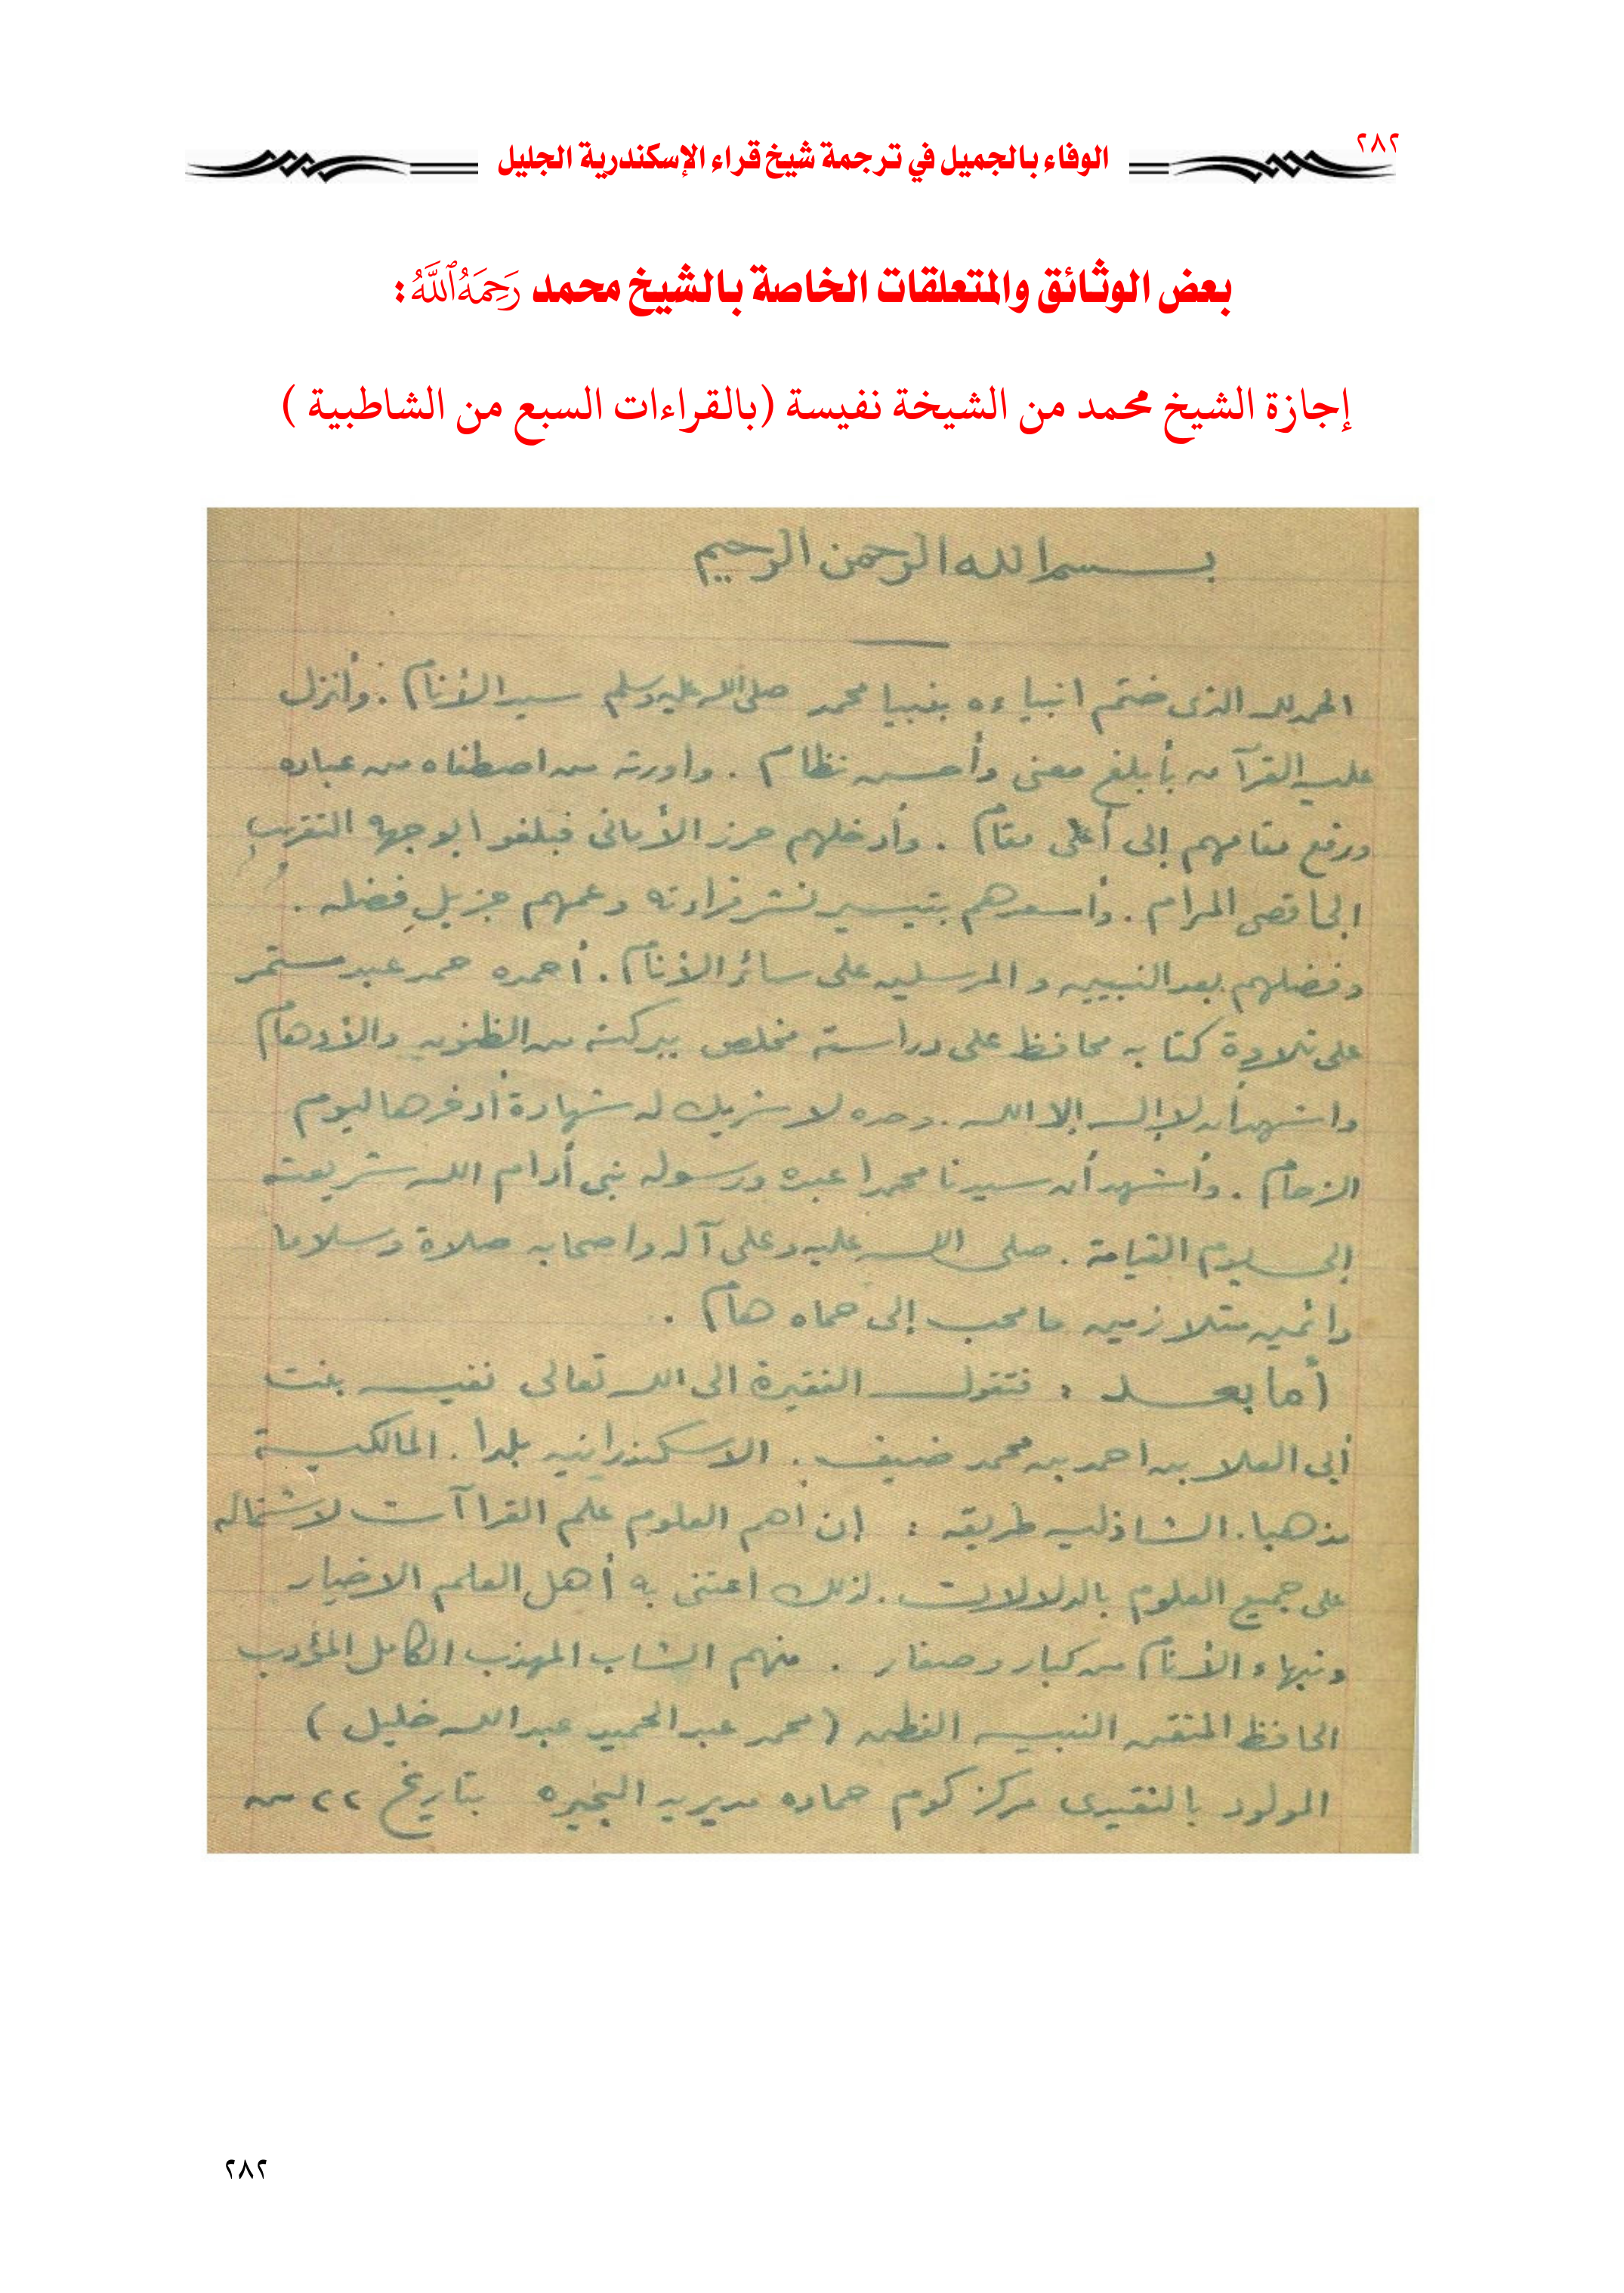 ٢٨٢
الوفاء بالجميل في ترجمة شيخ قراء الإسكندرية الجليل
بعض الوثائق والمتعلقات الخاصة بالشيخ محمد رَحِمَهُ ٱللَّهُ:
إجازة الشيخ محمد من الشيخة نفيسة (بالقراءات السبع من الشاطبية )
بسم الله الرحمن الرحيم
الحمد لله الذى ختم انبياءه بنبينا محمد صلى الله عليه وسلم سيد الأنام . وأنزل
عليه القرآن بأبلغ معنى وأحسن نظام . واورثه من اصطفاه من عباده
ورفع مقامهم إلى أعلى مقام . وأدخلهم حرز الأمانى فبلغوا بوجهه التقريب
الى اقصى المرام . وأسعدهم بتيسير نشر قراءته وعمهم جزيلِ فضله .
وفضلهم بعد النبيين والمرسلين على سائر الأنام . أحمده حمد عبد مستمر
على تلاوة كتابه محافظ على دراسته مخلص ببركته من الظنون والأوهام
واشهد أن لا إله إلا الله . وحده لا شريك له شهادة أدخرها ليوم
الزحام . وأشهد أن سيدنا محمدا عبده ورسوله نبى أدام الله شريعته
إلى يوم القيامة . صلى الله عليه وعلى آله واصحابه صلاة وسلاما
دائمين متلازمين ما محب إلى حماه هام .
أما بعد : فتقول الفقيرة الى الله تعالى نفيسه بنت
أبى العلا بن احمد بن محمد ضيف . الاسكندرانيه بلدا . المالكية
مذهبا . الشاذليه طريقه : إن اهم العلوم علم القراآت لاشتماله
على جميع العلوم بالدلالات . لذلك اعتنى به أهل العلم الاخيار
ونبهاء الأنام من كبار وصغار . منهم الشاب المهذب الكامل المؤدب
الحافظ المتقن النبيه الفطن ( محمد عبد الحميد عبد الله خليل )
المولود بالنقيدى مركز كوم حماده مديريه البحيره بتاريخ ٢٢ من
٢٨٢